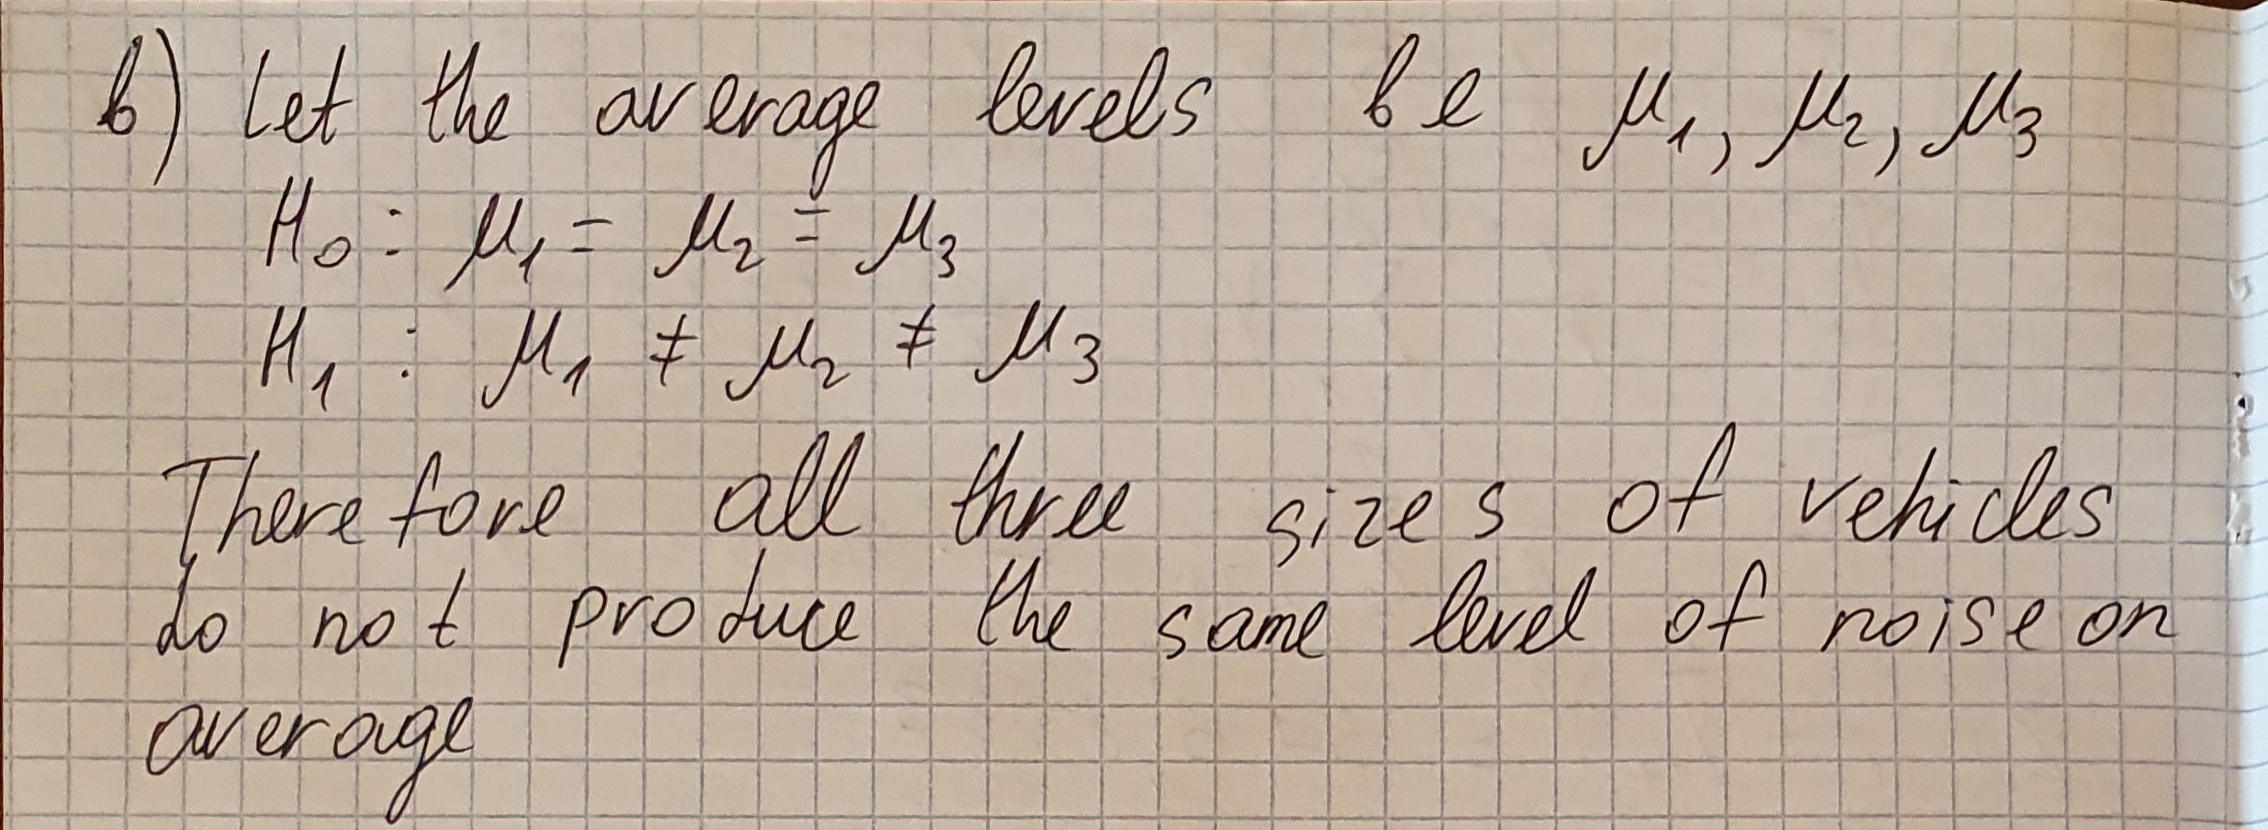 b) Let the average levels be μ₁, μ₂, μ₃
H₀ : μ₁ = μ₂ = μ₃
H₁ : μ₁ ≠ μ₂ ≠ μ₃
Therefore all three sizes of vehicles
do not produce the same level of noise on
average